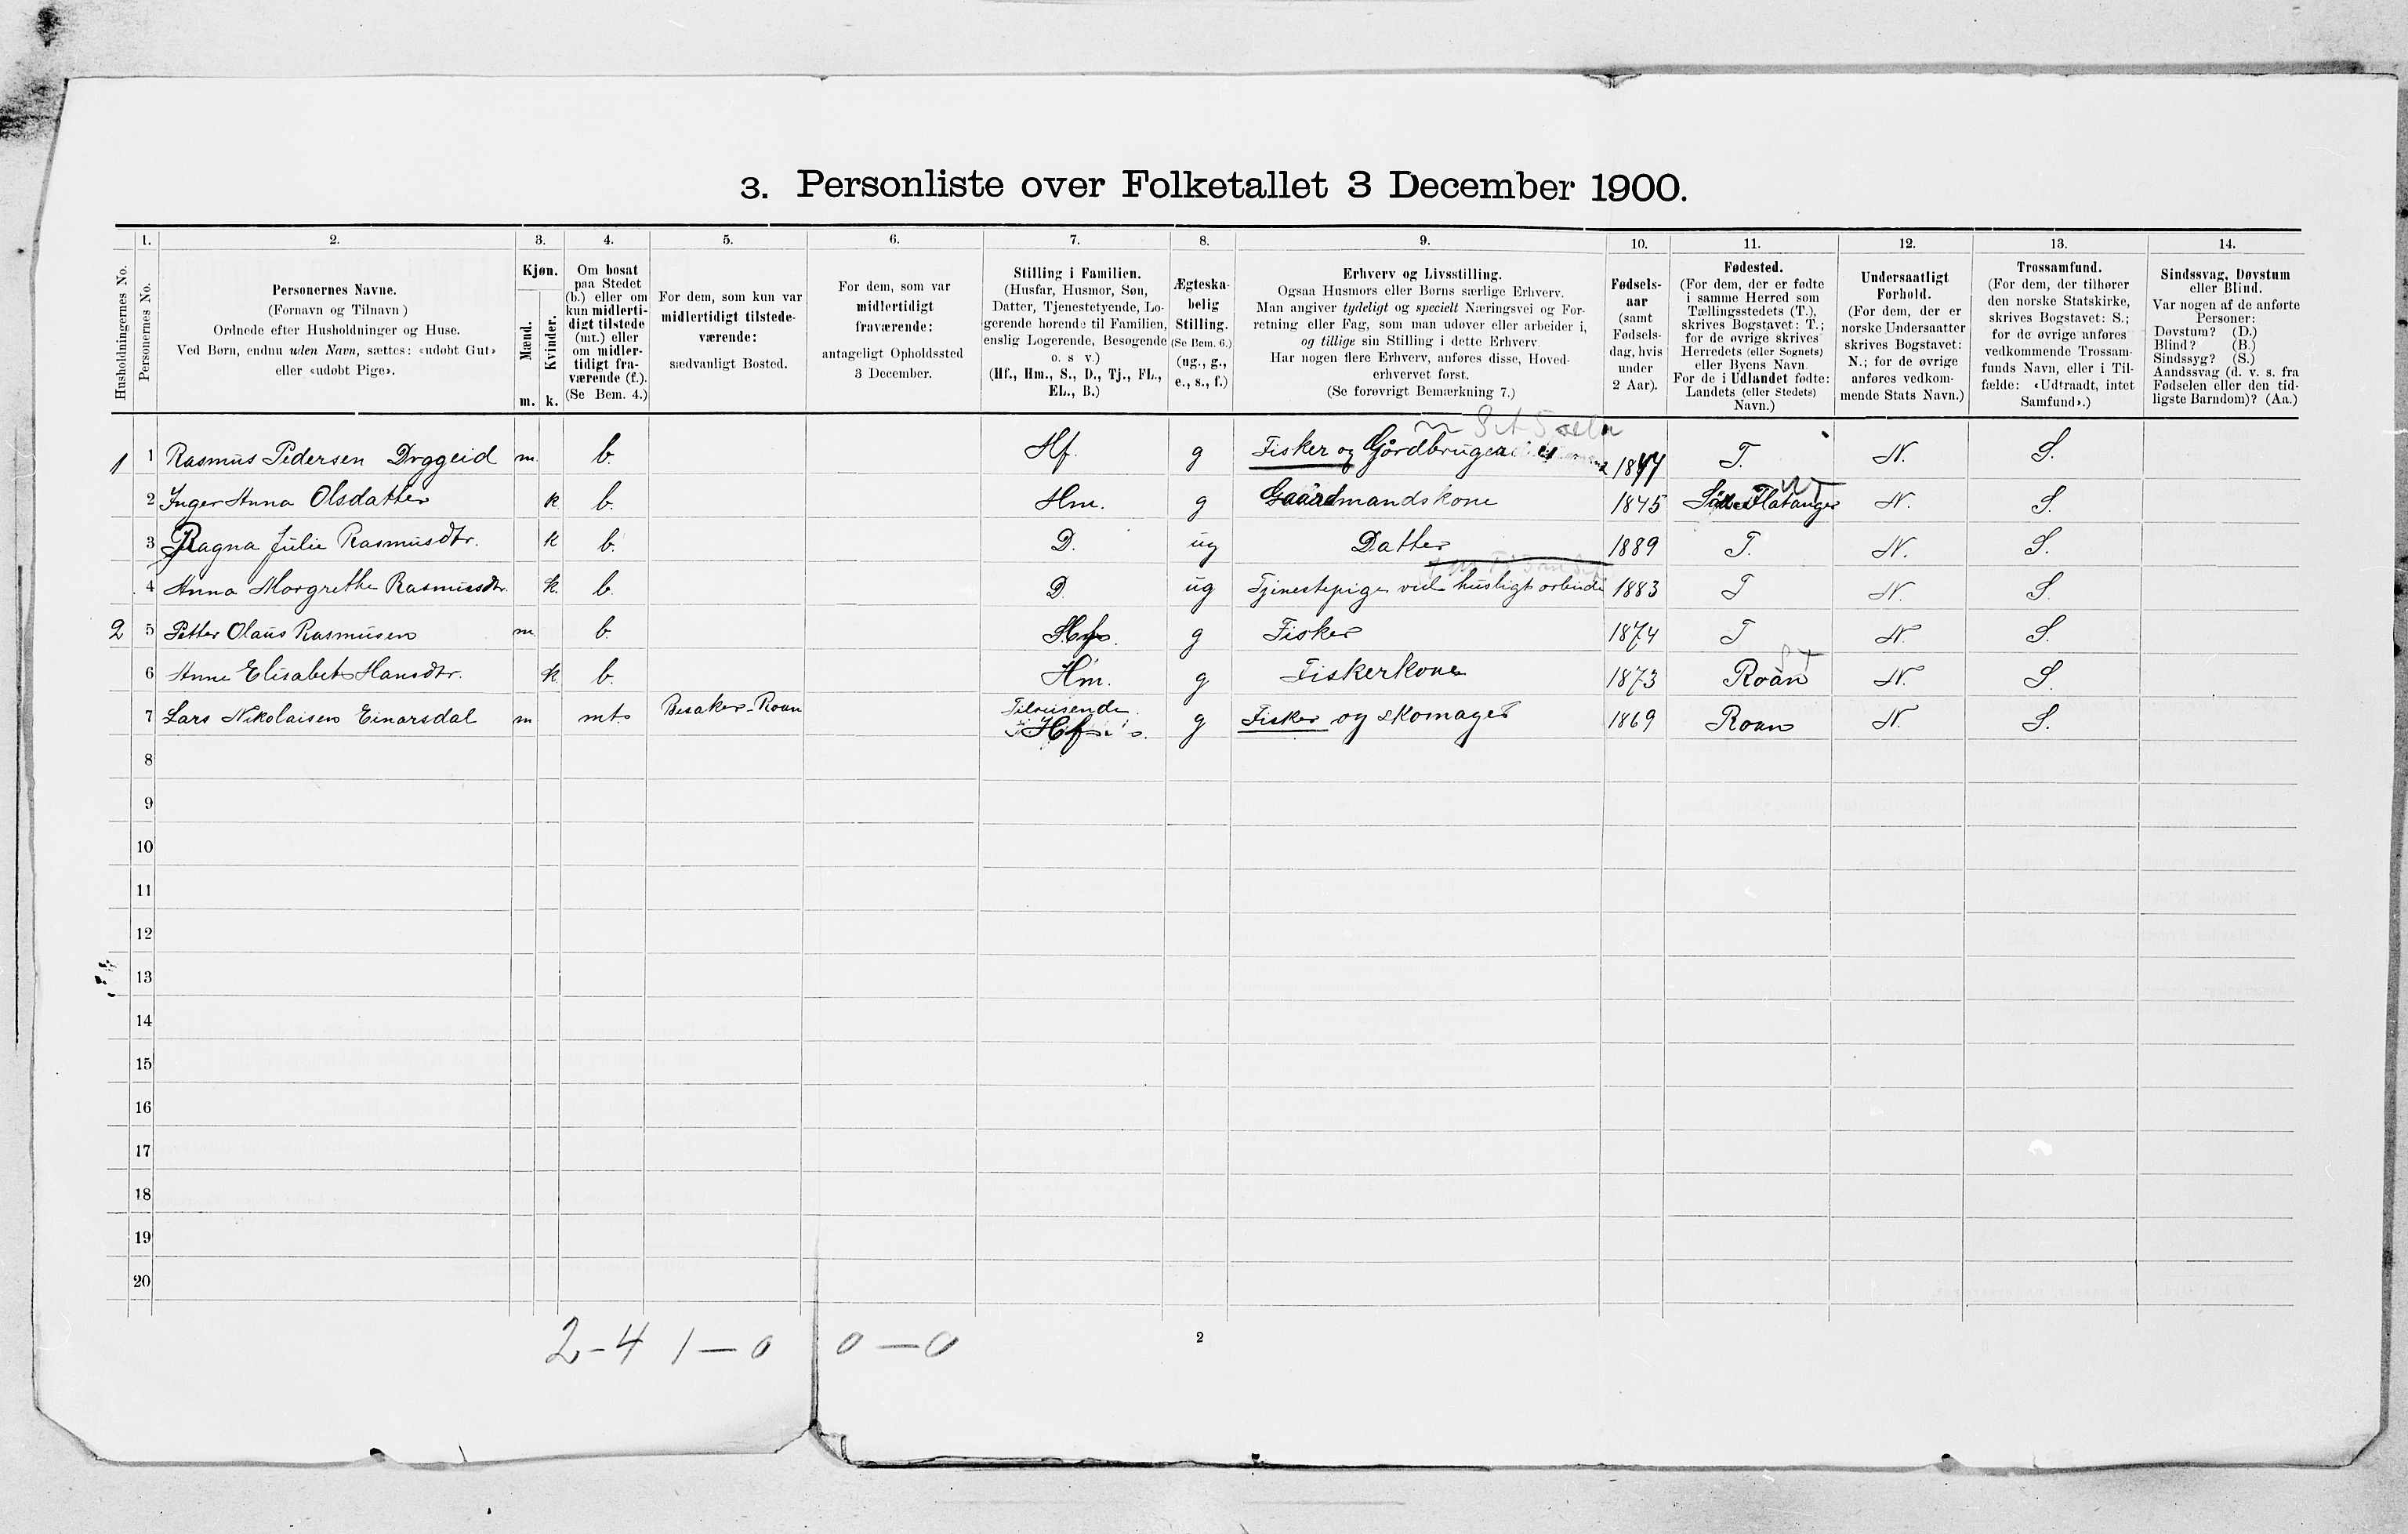 3. Personliste over Folketallet 3 December 1900.
1. 2. 3. 4. 5. 6. 7. 8. 9. 10. 11. 12. 13. 14.
Husholdningernes No.
Personernes No.
Personernes Navne.
(Fornavn og Tilnavn)
Ordnede efter Husholdninger og Huse.
Ved Børn, endnu uden Navn, sættes: «udøbt Gut»
eller «udøbt Pige».
Kjøn.
Mænd.
Kvinder.
m. k.
Om bosat
paa Stedet
(b.) eller om
kun midlerti-
digt tilstede
(mt.) eller
om midler-
tidigt fra-
værende (f.).
(Se Bem. 4.)
For dem, som kun var
midlertidigt tilstede-
værende:
sædvanligt Bosted.
For dem, som var
midlertidigt
fraværende:
antageligt Opholdssted
3 December.
Stilling i Familien.
(Husfar, Husmor, Søn,
Datter, Tjenestetyende, Lo-
gerende hørende til Familien,
enslig Logerende, Besøgende
o. s v.)
(Hf., Hm., S., D., Tj., FL.,
EL., B.)
Ægteska-
belig
Stilling.
(Se Bem. 6.)
(ug., g.,
e., s., f.)
Erhverv og Livsstilling.
Ogsaa Husmors eller Børns særlige Erhverv.
Man angiver tydeligt og specielt Næringsvei og For-
retning eller Fag, som man udøver eller arbeider i,
og tillige sin Stilling i dette Erhverv.
Har nogen flere Erhverv, anføres disse, Hoved-
erhvervet først.
(Se forøvrigt Bemærkning 7.)
Fødsels-
aar
(samt
Fødsels-
dag, hvis
under
2 Aar).
Fødested.
(For dem, der er fødte
i samme Herred som
Tællingsstedets (T.),
skrives Bogstavet: T.;
for de øvrige skrives
Herredets (eller Sognets)
eller Byens Navn.
For de i Udlandet fødte:
Landets (eller Stedets)
Navn.)
Undersaatligt
Forhold.
(For dem, der er
norske Undersaatter
skrives Bogstavet:
N.; for de øvrige
anføres vedkom-
mende Stats Navn.)
Trossamfund.
(For dem, der tilhører
den norske Statskirke,
skrives Bogstavet: S.;
for de øvrige anføres
vedkommende Trossam-
funds Navn, eller i Til-
fælde: «Udtraadt, intet
Samfund».)
Sindssvag, Døvstum
eller Blind.
Var nogen af de anførte
Personer:
Døvstum? (D.)
Blind? (B.)
Sindssyg? (S.)
Aandssvag (d. v. s. fra
Fødselen eller den tid-
ligste Barndom)? (Aa.)
1 1 Rasmus Pedersen m. b. Hf. g Fisker og Gårdbruger T. N. S.
2 Inger Anna Olsdatter k b. Hm. g Gaardmandskone 1845 Flatanger N. S.
3 Ragna Julie Rasmusdtr. k b. D. ug Datter 1889 T. N. S.
4 Anna Morgrethe Rasmusdtr. k. b. D. ug Tjenestepige ved husligt arbeide 1883 T N. S.
2 5 Petter Olaus Rasmusen m. b. Hf. g Fisker 1874 T N. S.
6 Anne Elisabet Hansdtr. k b. Hm. g Fiskerkone 1873 Roan N. S.
7 Lars Nikolaisen Einarsdal m mt. Besaker-Roan Tilreisende Hf g Fisker og skomager 1869 Roan N. S.
8
9
10
11
12
13
14
15
16
17
18
19
20
2-4 1-0 0-0
2